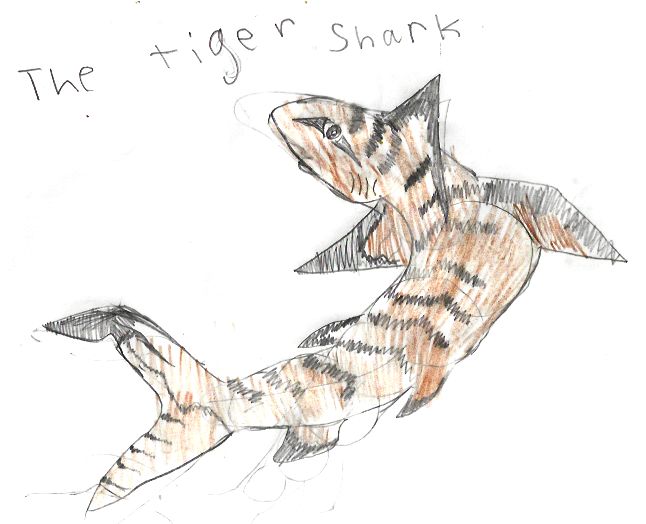 The tiger Shark